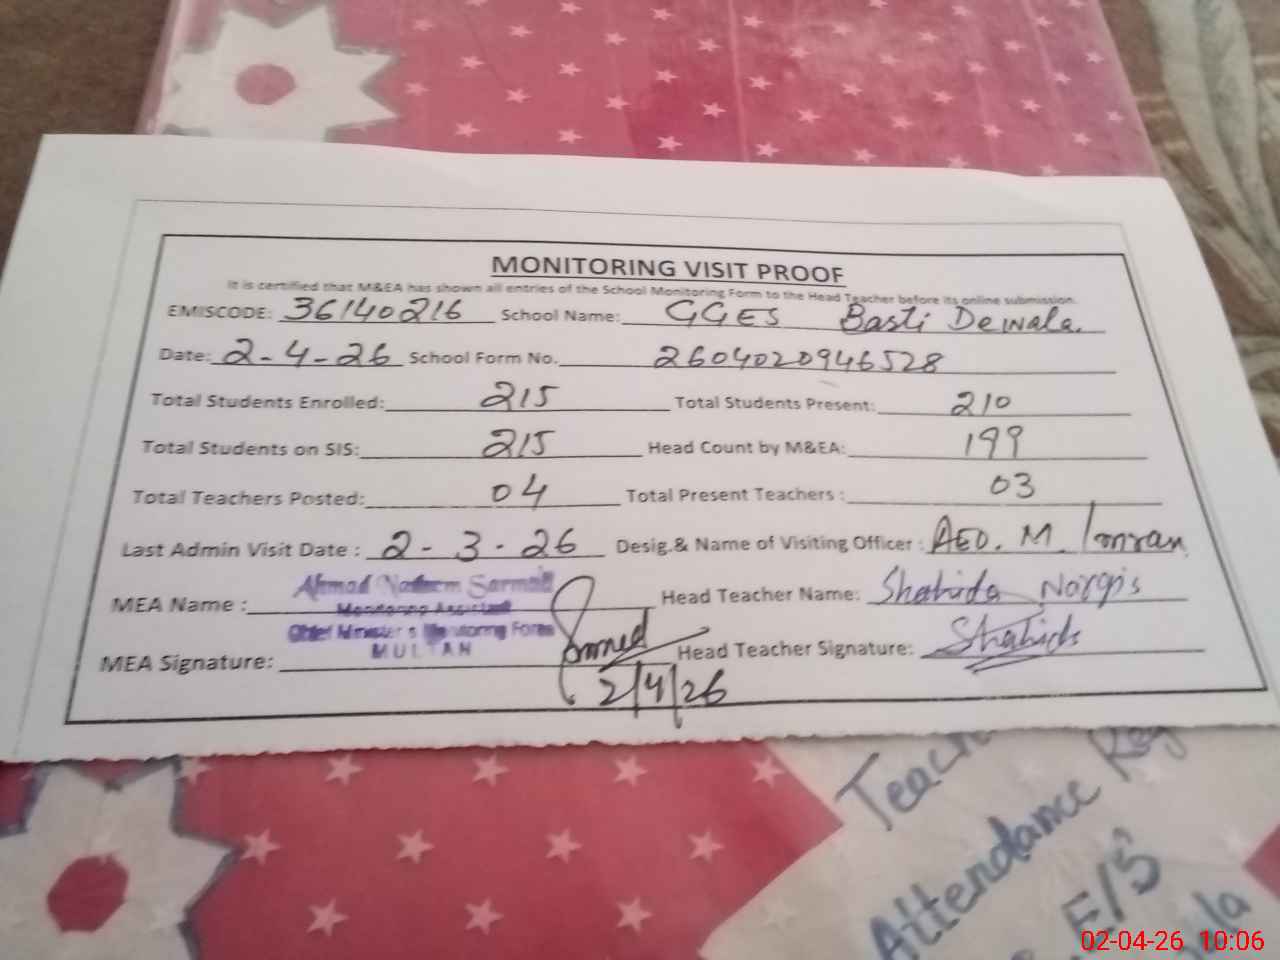 MONITORING VISIT PROOF
It is certified that M&EA has shown all entries of the School Monitoring Form to the Head Teacher before its online submission.
EMISCODE: 36140216 School Name: GGES Basti Dewala.
Date: 2-4-26 School Form No. 2604020946528
Total Students Enrolled: 215 Total Students Present: 210
Total Students on SIS: 215 Head Count by M&EA: 199
Total Teachers Posted: 04 Total Present Teachers : 03
Last Admin Visit Date : 2-3-26 Desig.& Name of Visiting Officer : AEO. M. Imran
Ahmad Nadeem
MEA Name : Monitoring Assistant Head Teacher Name: Shahida Nargis
Chief Minister's Monitoring Force
MULTAN
MEA Signature: Head Teacher Signature: Shahida
2/4/26
Attendance
E/S
02-04-26 10:06